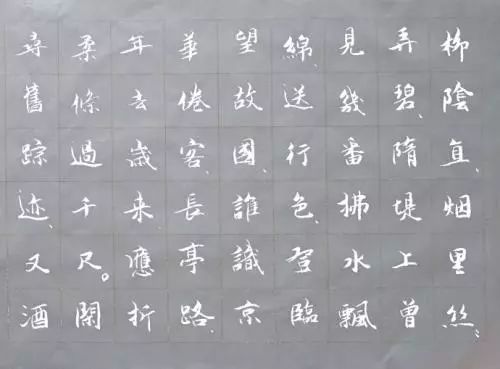 柳陰直、烟里丝〻
弄碧、隋堤上曾
見幾番拂水飄
綿、送行色、登臨
望故國、誰識京
華倦客、長亭路、
年去歲来、應折
柔條過千尺。閑
尋舊踪迹、又酒